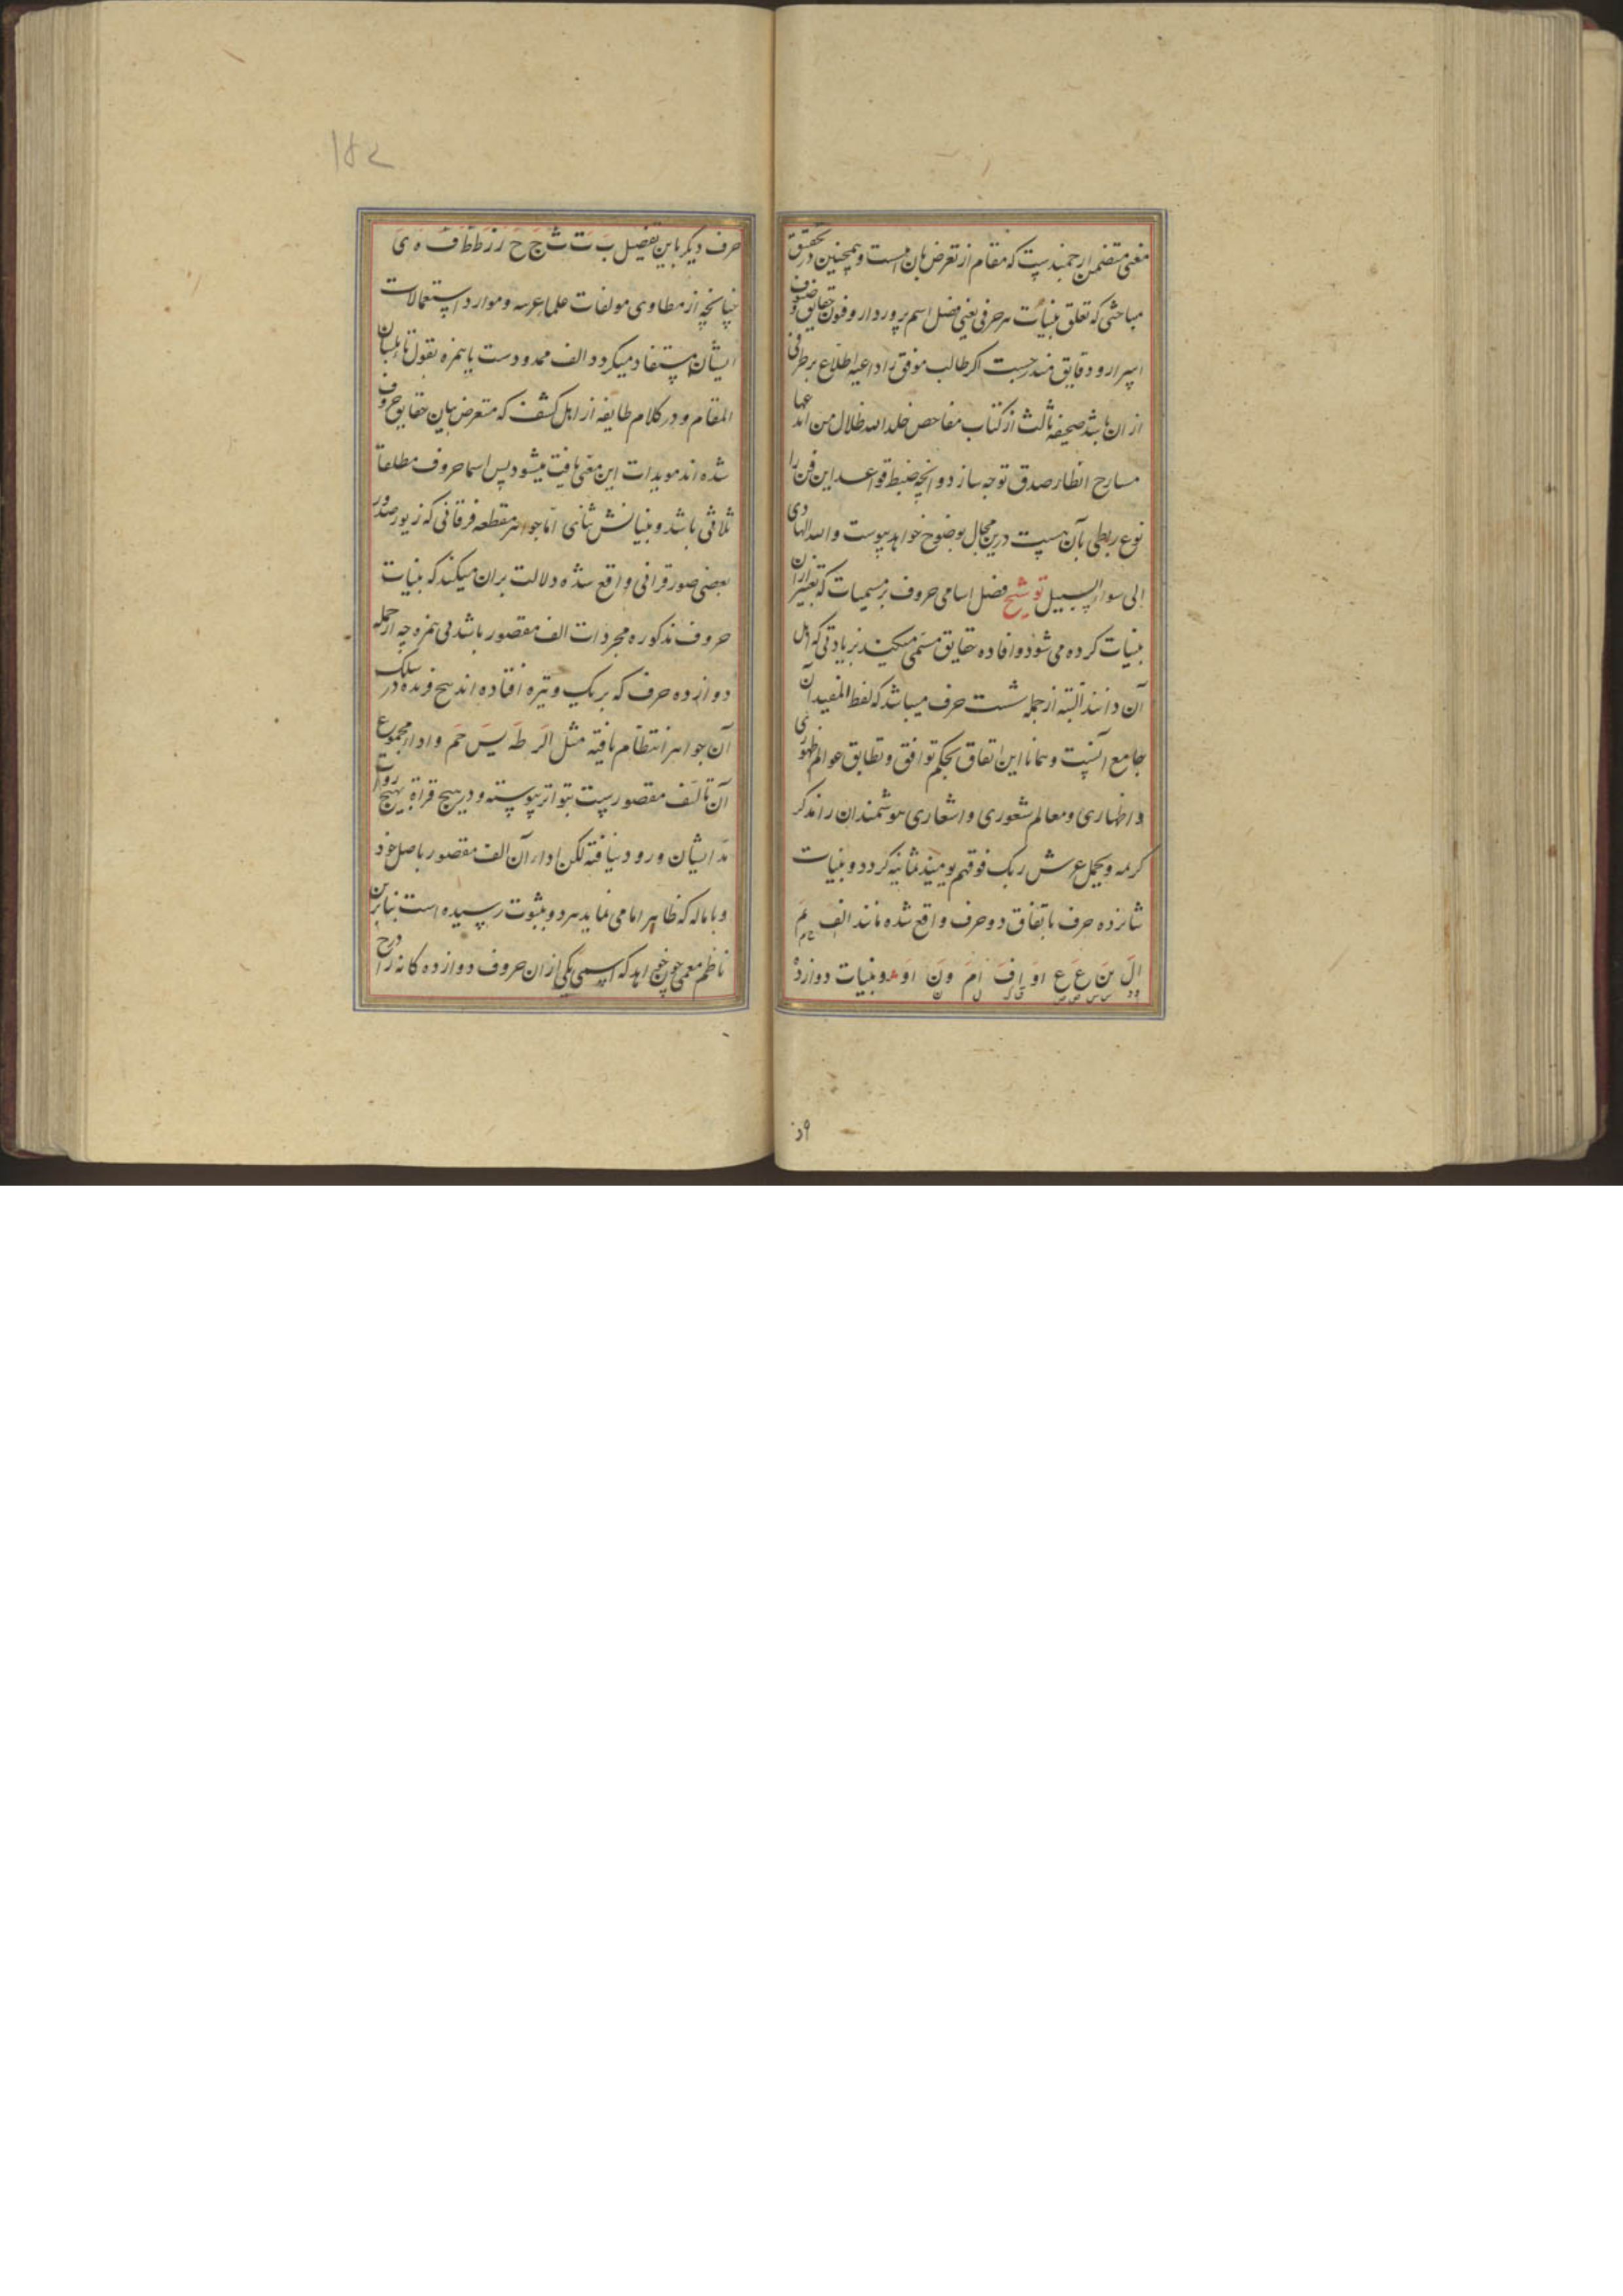 معنی متضمن ارجمندیست که مقام از تعرض بان است و همچنین در تحقیق
مباحثی که تعلق ببینات هر حرفی یعنی فضل اسم برو دارد و فنون حقایق و صنوف
اسرار و دقایق مندرجست اگر طالب موفق را داعیه اطلاع بر طرفی
از ان باشد صحیفه ثالث از کتاب مفاحص خلد الله ظلال من
مسارح انظار صدق توجه سازد و انچه ضبط قواعد این فن را
نوع ربطی بآن هست درین مجال بوضوح خواهد پیوست و الله الهادی
الی سواء السبیل توشیح فضل اسامی حروف بر مسمیات که تعبیر از ان
ببینات کرده می شود و افاده حقایق مسمی میکنند بزیادتی که اهل
آن دانند البته از جمله شست حرف میباشد که لفظ المفید آن
جامع آنست و همانا این اتفاق بحکم توافق و تطابق عوالم ظهوری
و اظهاری و معالم شعوری و اشعاری هوشمندان را مذکر
کرمه و یحمل عرش ربک فوقهم یومیند ثمانیه گردد و بینات
شانزده حرف باتفاق دو حرف واقع شده مانند الف یم
ال ین ع ع او اف ام ون او و بینات دوازده
۱۵۲
حرف دیگر باین تفصیل ب ت ث ج ح ر ز ط ظ ف ه ی
چنانچه از مطاوی مولفات علما عربیه و موارد استعمالات
ایشان مستفاد میگردد الف ممدودست یا همزه بقول
المقام و در کلام طایفه از اهل کشف که متعرض بیان حقایق حروف
شده اند مویدات این معنی یافت میشود پس اسما حروف مطلقا
ثلاثی باشد و بیناتش ثنائی اما جواهر مقطعه فرقانی که زیور صدور
بعضی صور قرانی واقع شده دلالت بران میکند که بینات
حروف مذکوره مجردات الف مقصور باشد بی همزه چه از جمله
دوازده حرف که بر یک وتیره افتاده اند پنج فرده در سلک
آن جواهر انتظام یافته مثل الر طه یس حم و اداء مجموع
آن تا الف مقصوریست بتواتر پیوسته و در هیچ قراة بهیچ روایت
مد ایشان ورود نیافته لکن اداء آن الف مقصور باصل خود
و باماله که ظاهرا یا می نماید هر دو بثبوت رسیده است بنابرین
ناظم معمی چون خواهد که اسمی یکی از ان حروف دوازده گانه را درج